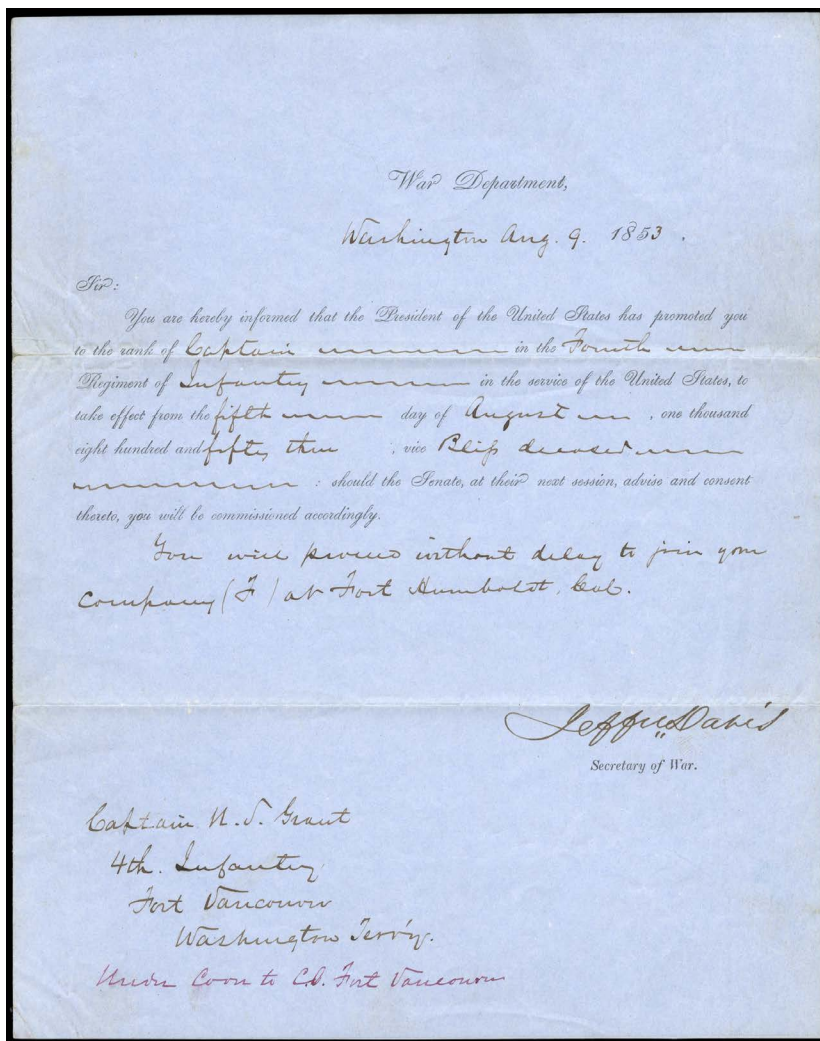 War Department,
Washington Aug. 9. 1853.
Sir:
You are hereby informed that the President of the United States has promoted you
to the rank of Captain in the Fourth
Regiment of Infantry in the service of the United States, to
take effect from the fifth day of August, one thousand
eight hundred and fifty three, vice Bliss deceased
: should the Senate, at their next session, advise and consent
thereto, you will be commissioned accordingly.
You will proceed without delay to join your
company (F) at Fort Humboldt, Cal.
Jeffn Davis
Secretary of War.
Captain U.S. Grant
4th. Infantry
Fort Vancouver
Washington Terr'y.
Under Cover to C.O. Fort Vancouver